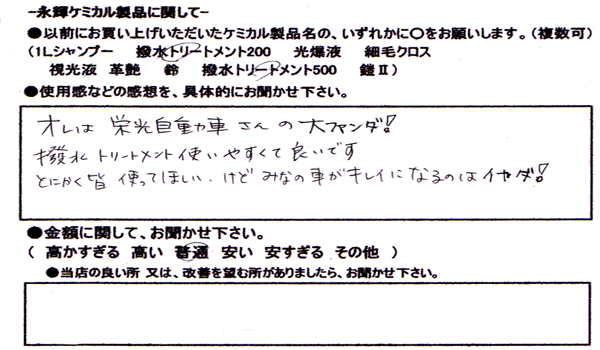 -永輝ケミカル製品に関して-
●以前にお買い上げいただいたケミカル製品名の、いずれかに〇をお願いします。(複数可)
(1Lシャンプー 撥水トリートメント200 光爆液 細毛クロス
視光液 革艶 鈴 撥水トリートメント500 鎧Ⅱ)
●使用感などの感想を、具体的にお聞かせ下さい。
オレは 栄光自動車さんの大ファンダ!
撥水トリートメント使いやすくて良いです
とにかく皆 使ってほしい.けど みなの車がキレイになるのはイヤダ!
●金額に関して、お聞かせ下さい。
( 高かすぎる 高い 普通 安い 安すぎる その他 )
●当店の良い所 又は、改善を望む所がありましたら、お聞かせ下さい。